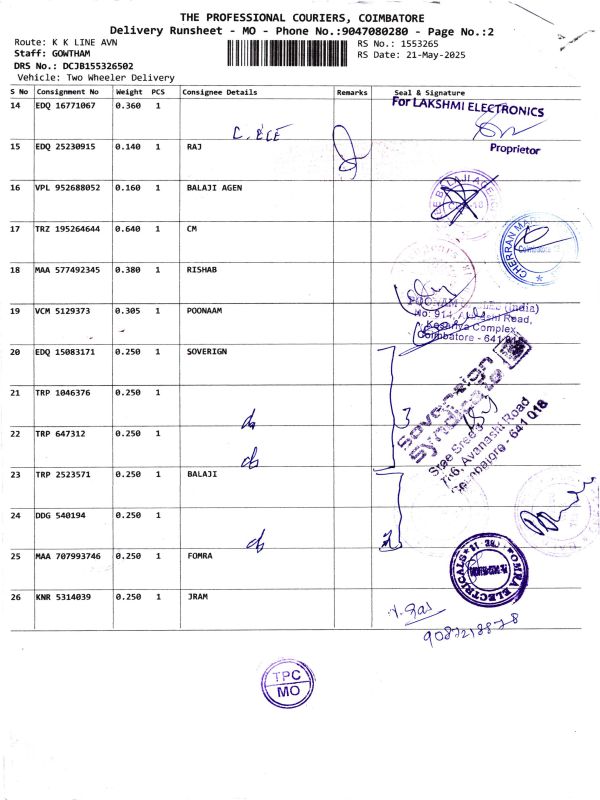 THE PROFESSIONAL COURIERS, COIMBATORE
Delivery Runsheet - MO - Phone No.:9047080280 - Page No.:2
Route: K K LINE AVN
RS No.: 1553265
Staff: GOWTHAM
RS Date: 21-May-2025
DRS No.: DCJB155326502
Vehicle: Two Wheeler Delivery
S No Consignment No Weight PCS Consignee Details Remarks Seal & Signature
14 EDQ 16771067 0.360 1
For LAKSHMI ELECTRONICS
Proprietor
15 EDQ 25230915 0.140 1 RAJ
16 VPL 952688052 0.160 1 BALAJI AGEN
17 TRZ 195264644 0.640 1 CM
18 MAA 577492345 0.380 1 RISHAB
19 VCM 5129373 0.305 1 POONAAM
No: 914, Road,
Complex,
Coimbatore - 641
20 EDQ 15083171 0.250 1 SOVERIGN
21 TRP 1046376 0.250 1
22 TRP 647312 0.250 1
do
3
sovereign
syndicate
Avanashi Road
641 018
23 TRP 2523571 0.250 1 BALAJI
do
24 DDG 540194 0.250 1
do
25 MAA 707993746 0.250 1 FOMRA
ELECTRICALS
26 KNR 5314039 0.250 1 JRAM
9087218878
TPC
MO